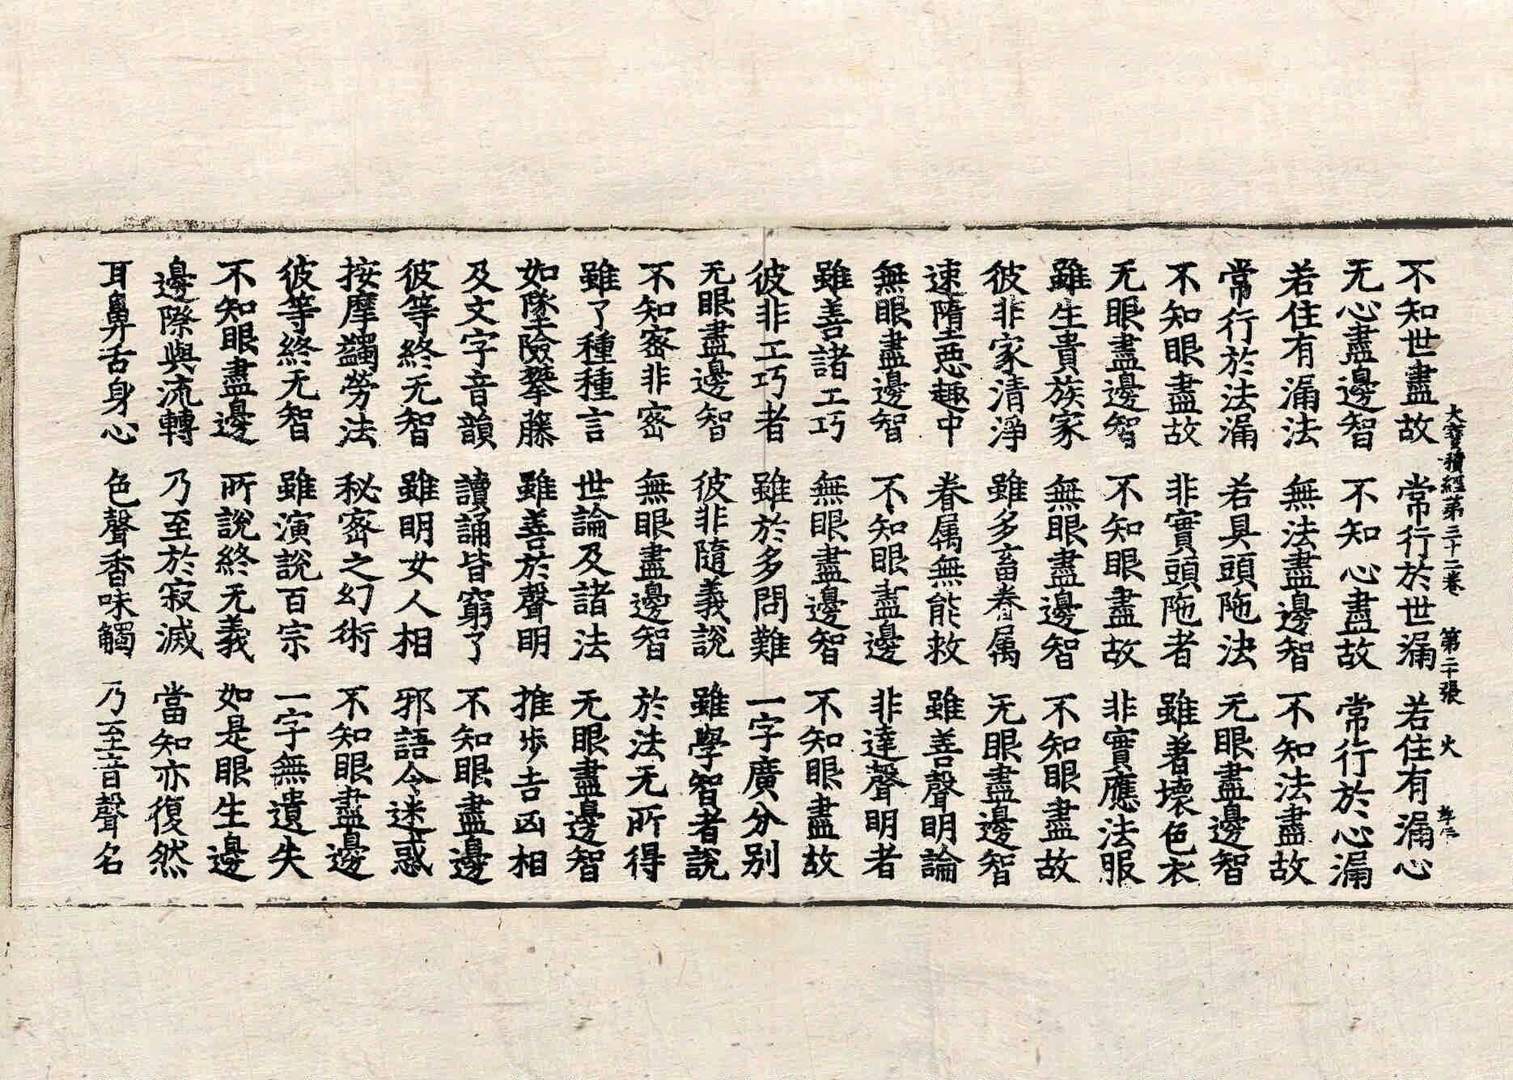 大寶積經第三十二卷　第二十張　火
不知世盡故　常行於世漏　若住有漏心
无心盡邊智　不知心盡故　常行於心漏
若住有漏法　無法盡邊智　不知法盡故
常行於法漏　若具頭陁法　无眼盡邊智
不知眼盡故　非實頭陁者　雖著壞色衣
无眼盡邊智　不知眼盡故　非實應法服
雖生貴族家　無眼盡邊智　不知眼盡故
彼非家清淨　雖多畜眷属　无眼盡邊智
速隋惡趣中　眷属無能救　雖善聲明論
無眼盡邊智　不知眼盡邊　非達聲明者
雖善諸工巧　無眼盡邊智　不知眼盡故
彼非工巧者　雖於多問難　一字廣分别
无眼盡邊智　彼非隨義說　雖學智者說
不知密非密　無眼盡邊智　於法无所得
雖了種種言　世論及諸法　无眼盡邊智
如墜險攀藤　雖善於聲明　推步吉凶相
及文字音韻　讀誦皆窮了　不知眼盡邊
彼等終无智　雖明女人相　邪語令迷惑
按摩蠲勞法　秘密之幻術　不知眼盡邊
彼等終无智　雖演說百宗　一字無遺失
不知眼盡邊　所說終无義　如是眼生邊
邊際與流轉　乃至於寂滅　當知亦復然
耳鼻舌身心　色聲香味觸　乃至音聲名